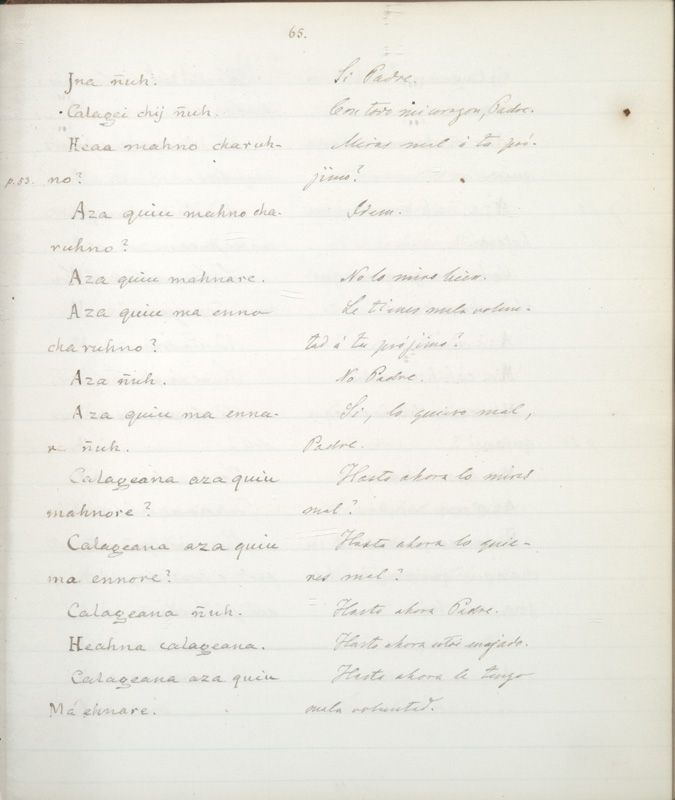 65.
Jna ñuh. Si Padre.
Calagei chij ñuh. Con todo mi corazon, Padre.
Heaa mahno charuh- Miras mal á tu pró-
p.53. no? jimo?
Aza quiu mahno cha- Idem.
ruhno?
Aza quiu mahnare. No lo miro bien.
Aza quiu ma enno Le tienes mala volun-
charuhno? tad á tu prójimo?
Aza ñuh. No Padre.
Aza quiu ma enna- Si, lo quiero mal,
r ñuh. Padre.
Calageana aza quiu Hasta ahora lo miras
mahnore? mal?
Calageana aza quiu Hasta ahora lo quie-
ma ennore? res mal?
Calageana ñuh. Hasta ahora Padre.
Heahna calageana. Hasta ahora estoi enojado.
Calageana aza quiu Hasta ahora le tengo
Má ehnare. mala voluntad.